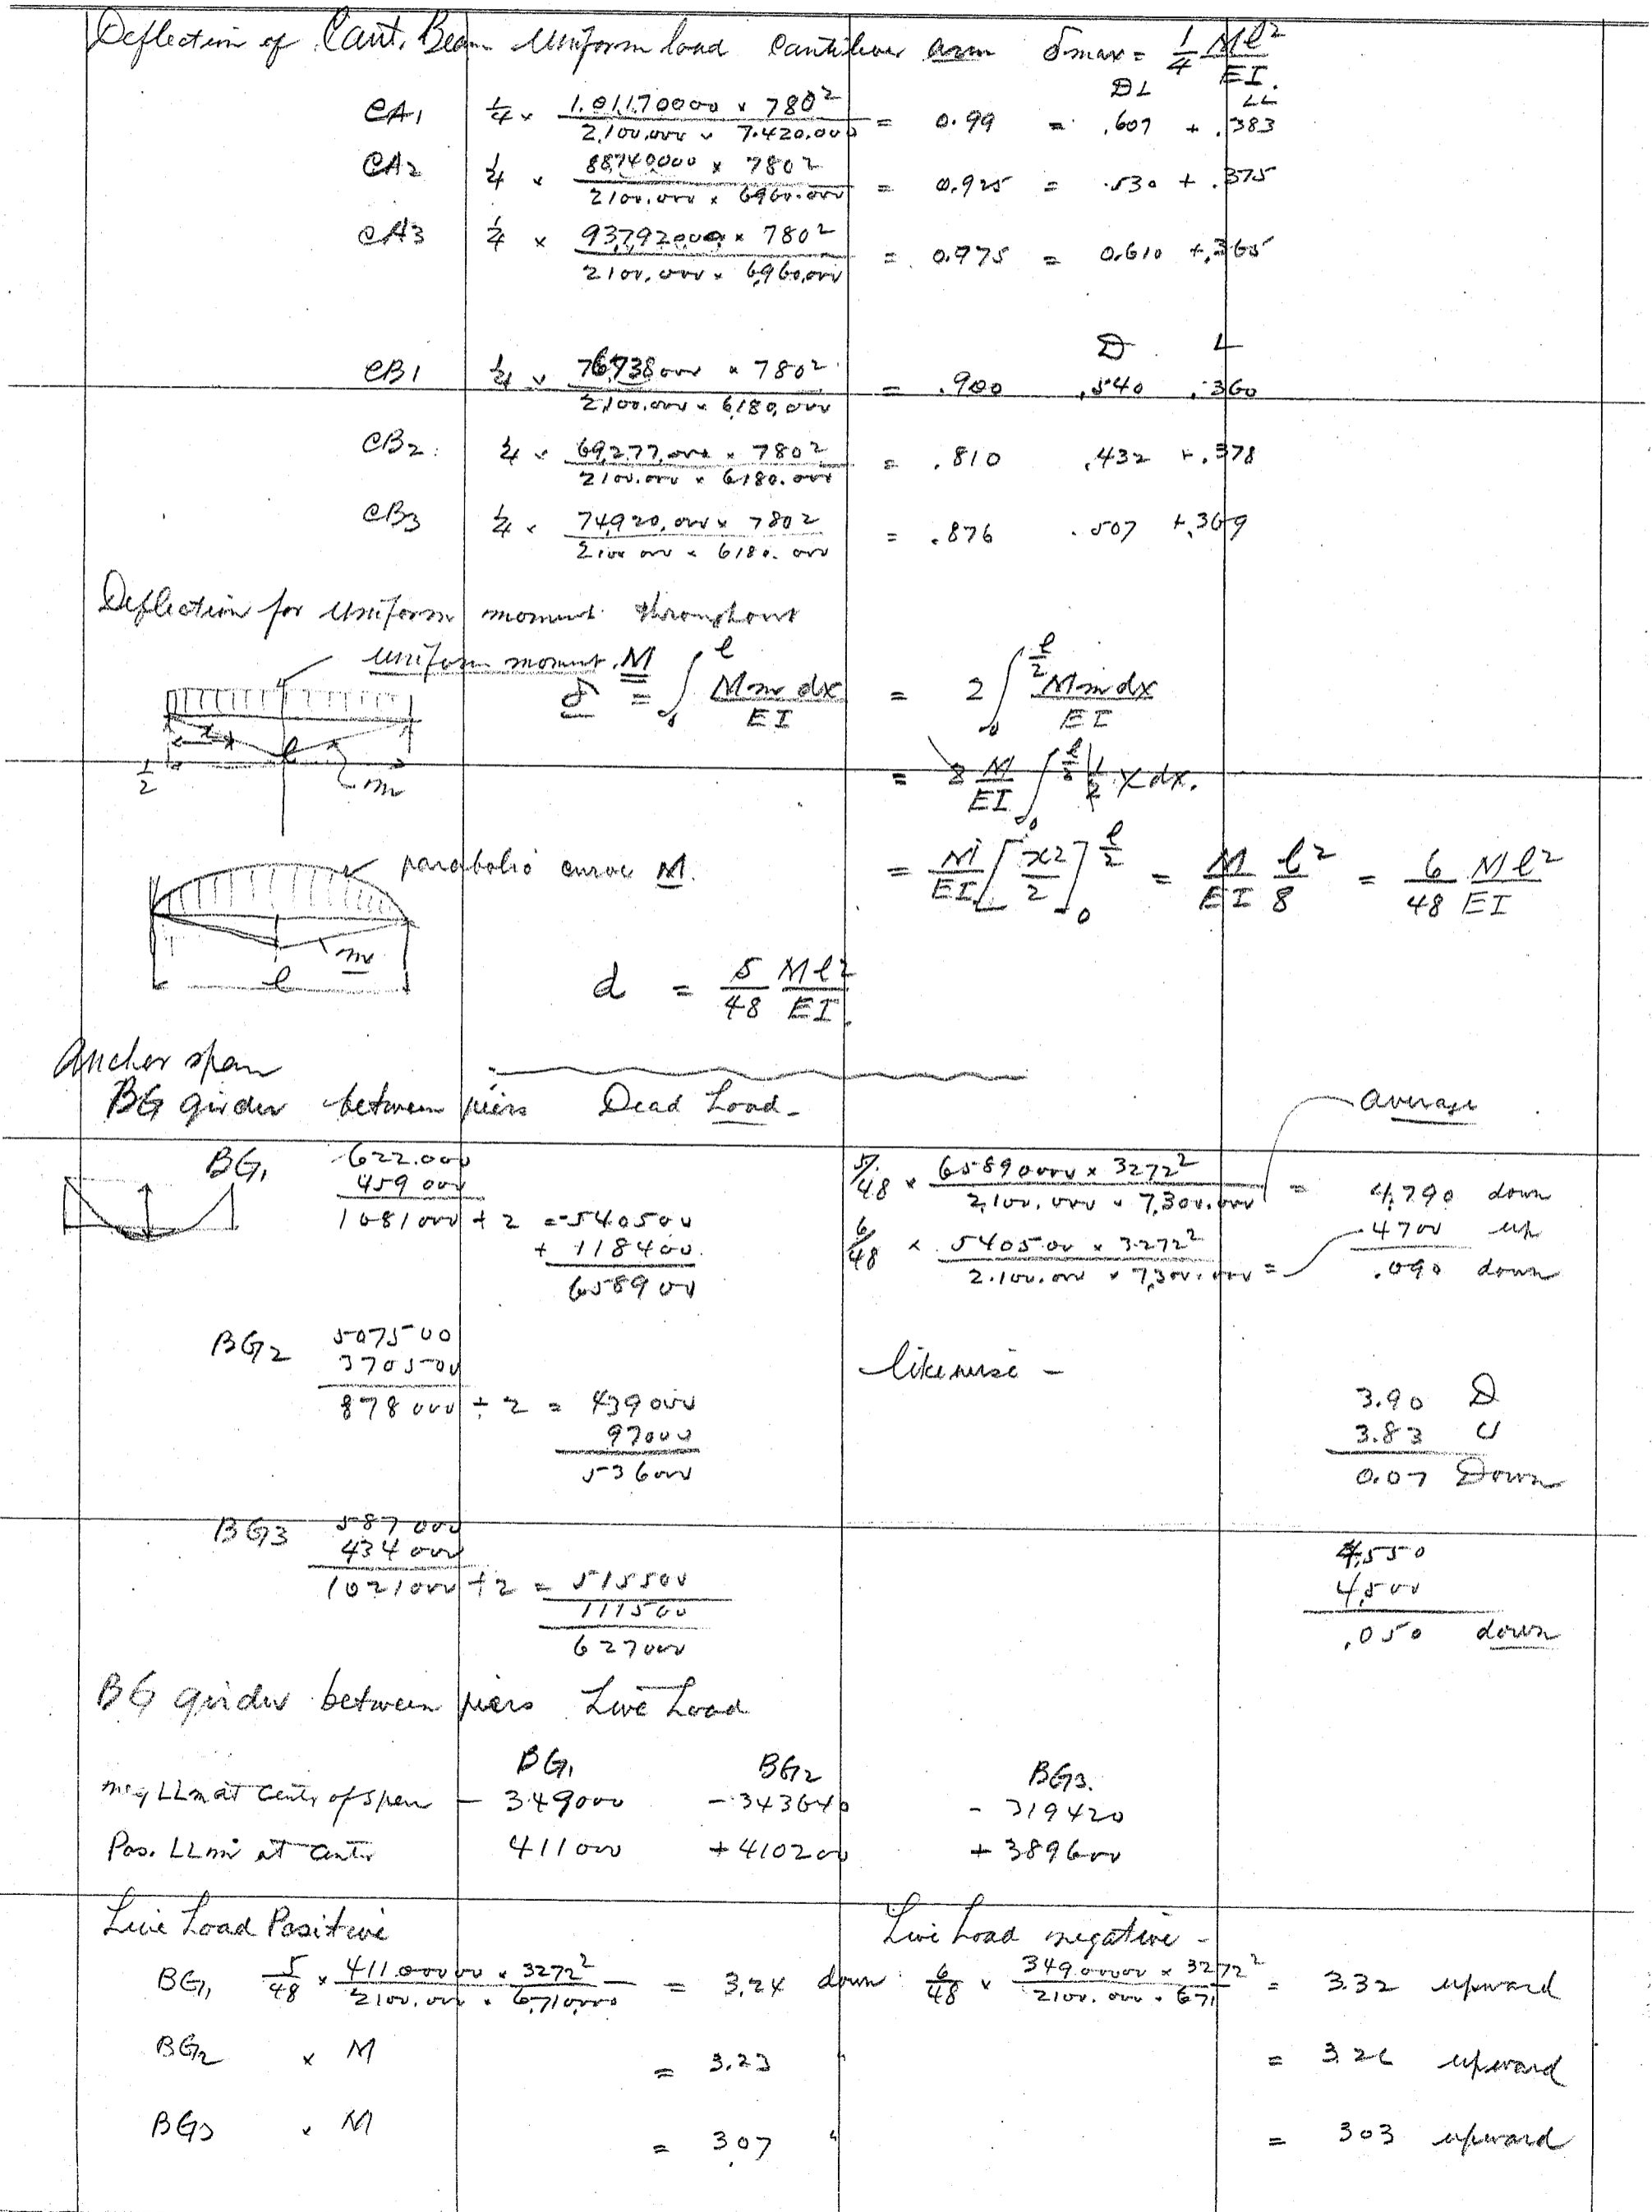 Deflection of Cant. Beam Uniform load cantilever arm δmax = 1/4 Ml²/EI.
DL LL
CA1 1/4 × 1,01,170000 × 780² / 2,100,000 × 7,420,000 = 0.99 = .607 + .383
CA2 1/4 × 88740000 × 780² / 2100,000 × 6960,000 = 0.925 = .530 + .375
CA3 1/4 × 93,792,000 × 780² / 2100,000 × 6,960,000 = 0.975 = 0.610 + .365
D L
CB1 1/4 × 76,738000 × 780² / 2,100,000 × 6,180,000 = .900 .540 .360
CB2 1/4 × 69,277,000 × 780² / 2100,000 × 6180,000 = .810 .432 + .378
CB3 1/4 × 74,920,000 × 780² / 2100 000 × 6180,000 = .876 .507 + .369
Deflection for uniform moment throughout
uniform moment M
δ = ∫₀^l Mm dx / EI = 2 ∫₀^(l/2) Mm dx / EI
x l
1/2 m
= 2 M/EI ∫₀^(l/2) 1/2 x dx.
parabolic curve M.
= M/EI [x²/2]₀^(l/2) = M/EI l²/8 = 6/48 Ml²/EI
m
l
d = 5/48 Ml²/EI.
Anchor span
BG girder between piers Dead Load - average
BG1 622.000
459 000
1081000 ÷ 2 = 540500
+ 118400.
658900
5/48 × 65890000 × 3272² / 2,100,000 × 7,300,000 = 4,790 down
6/48 × 540500 × 3272² / 2.100,000 × 7,300,000 = .4700 up
.090 down
BG2 507500
370500
878000 ÷ 2 = 439000
97000
536000
likewise -
3.90 D
3.83 U
0.07 Down
BG3 587000
434000
1021000 ÷ 2 = 515500
111500
627000
4,550
4,500
.050 down
BG girder between piers Live Load
BG1 BG2 BG3.
neg LLm at Center of Span - 349000 - 343640 - 319420
Pos. LLm at Center 411000 + 410200 + 389600
Live Load Positive Live Load negative -
BG1 5/48 × 411,00000 × 3272² / 2100,000 × 6,710,000 = 3.24 down 6/48 × 349,00000 × 3272² / 2100,000 × 671 = 3.32 upward
BG2 × M = 3.23 " = 3.26 upward
BG3 × M = 3.07 " = 3.03 upward